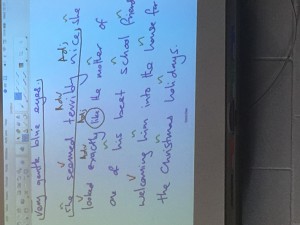 very gentle blue eyes.
Adv Adj
She seemed terribly nice, she
Adv Adj
looked exactly like the mother of
one of his best school friend
welcoming him into the house for
the Christmas holidays.